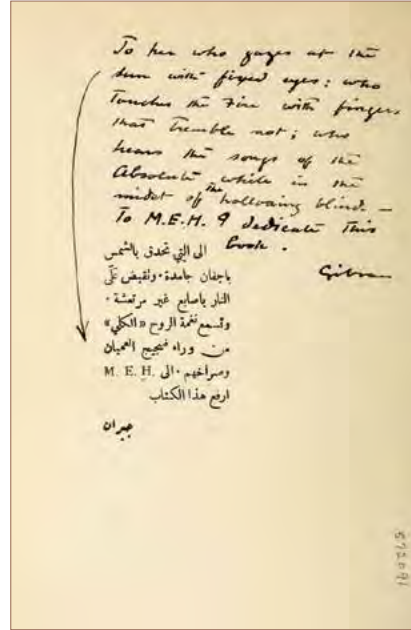 To her who gazes at the
sun with fixed eyes; who
Touches the Fire with fingers
that tremble not; who
hears the songs of the
Absolute while in the
midst of the hollowing blind. —
To M.E.H. I dedicate This
book.
Gibran
الى التي تحدق بالشمس
باجفان جامدة ٠ وتقبض على
النار باصابع غير مرتعشة ٠
وتسمع نغمة الروح «الكلي»
من وراء ضجيج العميان
وصراخهم ٠ الى M. E. H.
ارفع هذا الكتاب
جبران